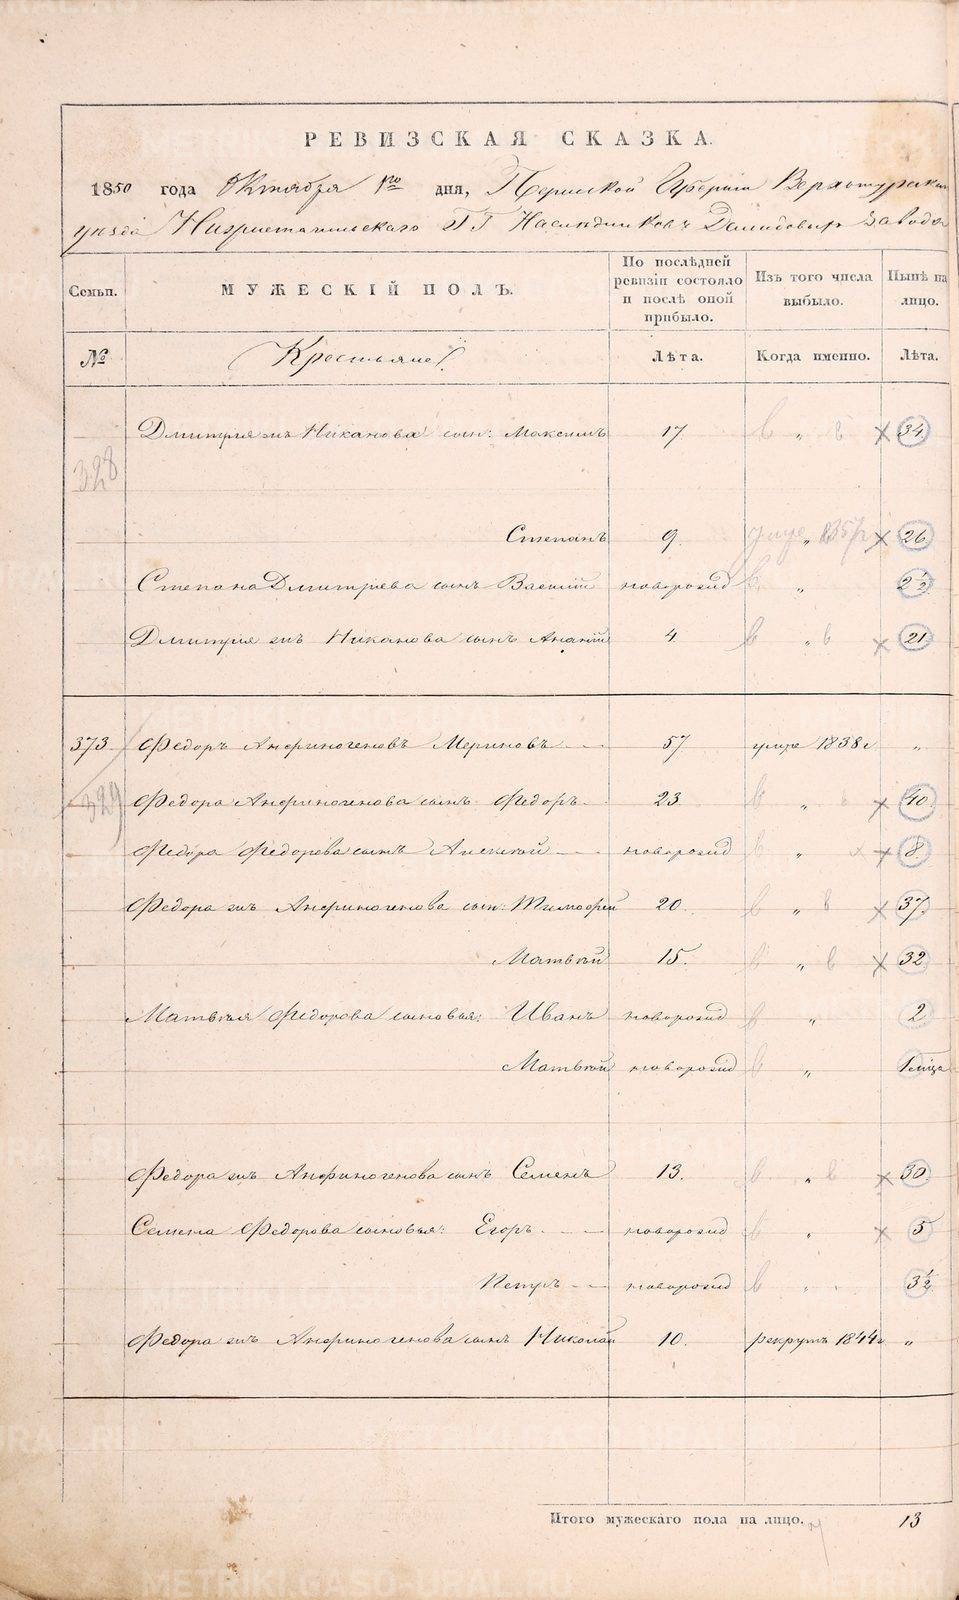 РЕВИЗСКАЯ СКАЗКА.
1850 года Октября 1го дня, Пермской Губернiи Верхотурскаго
уезда Нижнетагильскаго ГГ Наследниковъ Демидовыхъ завода
Семьи. МУЖЕСКIЙ ПОЛЪ. По послѣдней ревизiи состояло и послѣ оной прибыло. Изъ того числа выбыло. Нынѣ на лицо.
№ Крестьяне Лѣта. Когда именно. Лѣта.
328 Дмитрiя Никанова сын: Максимъ 17 „ 34
Степанъ 9. „ 26
Степана Дмитрiева сынъ Василiй новорожд „ 2½
Дмитрiя Никанова сынъ Ананiй 4 „ 21
373 Федоръ Анфиногеновъ Мериновъ 57 умре 1838г „
329 Федора Анфиногенова сынъ Федоръ 23 „ 40
Федора Федорова сынъ Алексѣй новорожд „ 8
Федора Анфиногенова сын: Тимофей 20 „ 37
Матвѣй 15. „ 32
Матвѣя Федорова сыновья: Иванъ новорожд „ 2
Матвѣй новорожд „ 1 мѣца
Федора Анфиногенова сынъ Семенъ 13. „ 30
Семена Федорова сыновья: Егоръ новорожд „ 5
Петръ новорожд „ 3½
Федора Анфиногенова сынъ Николай 10. рекрутъ 1844г „
Итого мужескаго пола на лицо. 13
METRIKI.GASO-URAL.RU